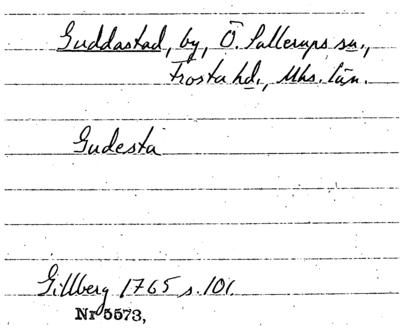 Guddastad, by, Ö. Sallerups sn.,
Frosta hd., Mhs. län.
Gudesta
Gillberg 1765 s. 101.
Nr 5573,